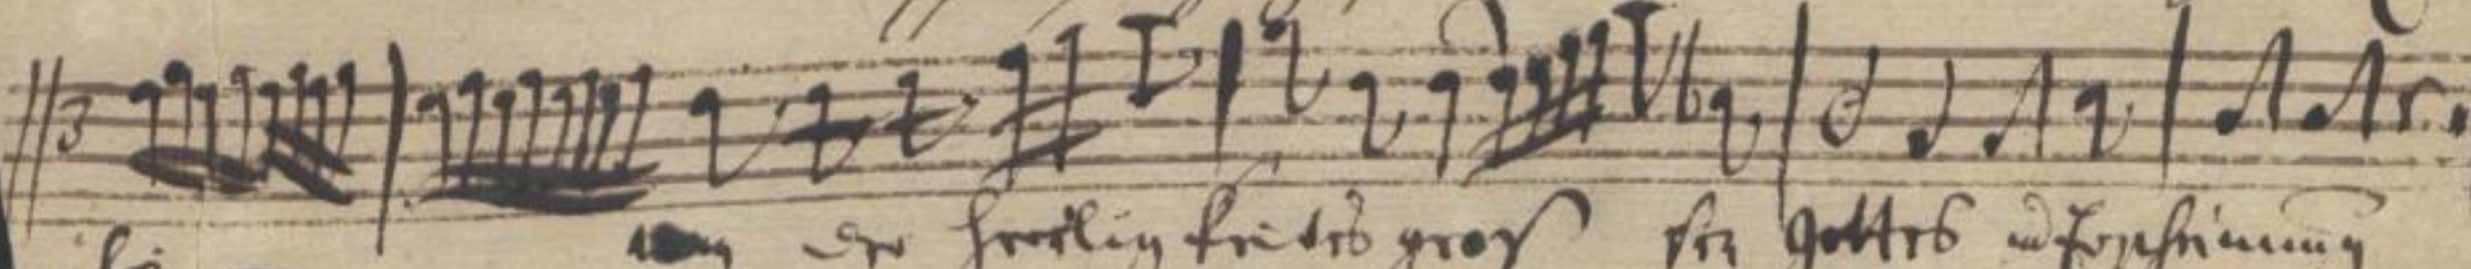 3
der herrlig keit des gros sen Gottes und Erscheinung